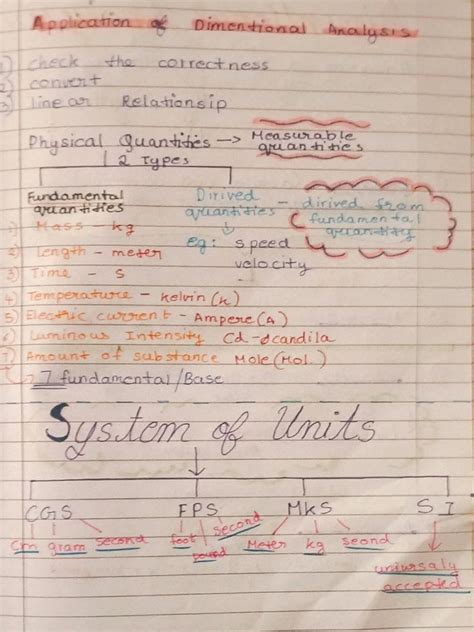 Application of Dimentional Analysis
1) check the correctness
2) convert
3) linear Relationsip
Physical Quantities → Measurable quantities
2 Types
Fundamental quantities
Dirived quantities - dirived from fundamental quantity
eg: speed
velocity
1) Mass - kg
2) Length - meter
3) Time - s
4) Temperature - Kelvin (k)
5) Electric current - Ampere (A)
6) Luminous Intensity Cd - candila
7) Amount of substance Mole (Mol.)
→ 7 fundamental/Base
System of Units
CGS FPS MKS SI
Cm gram second foot pound second Meter kg seond
uniursaly accepted